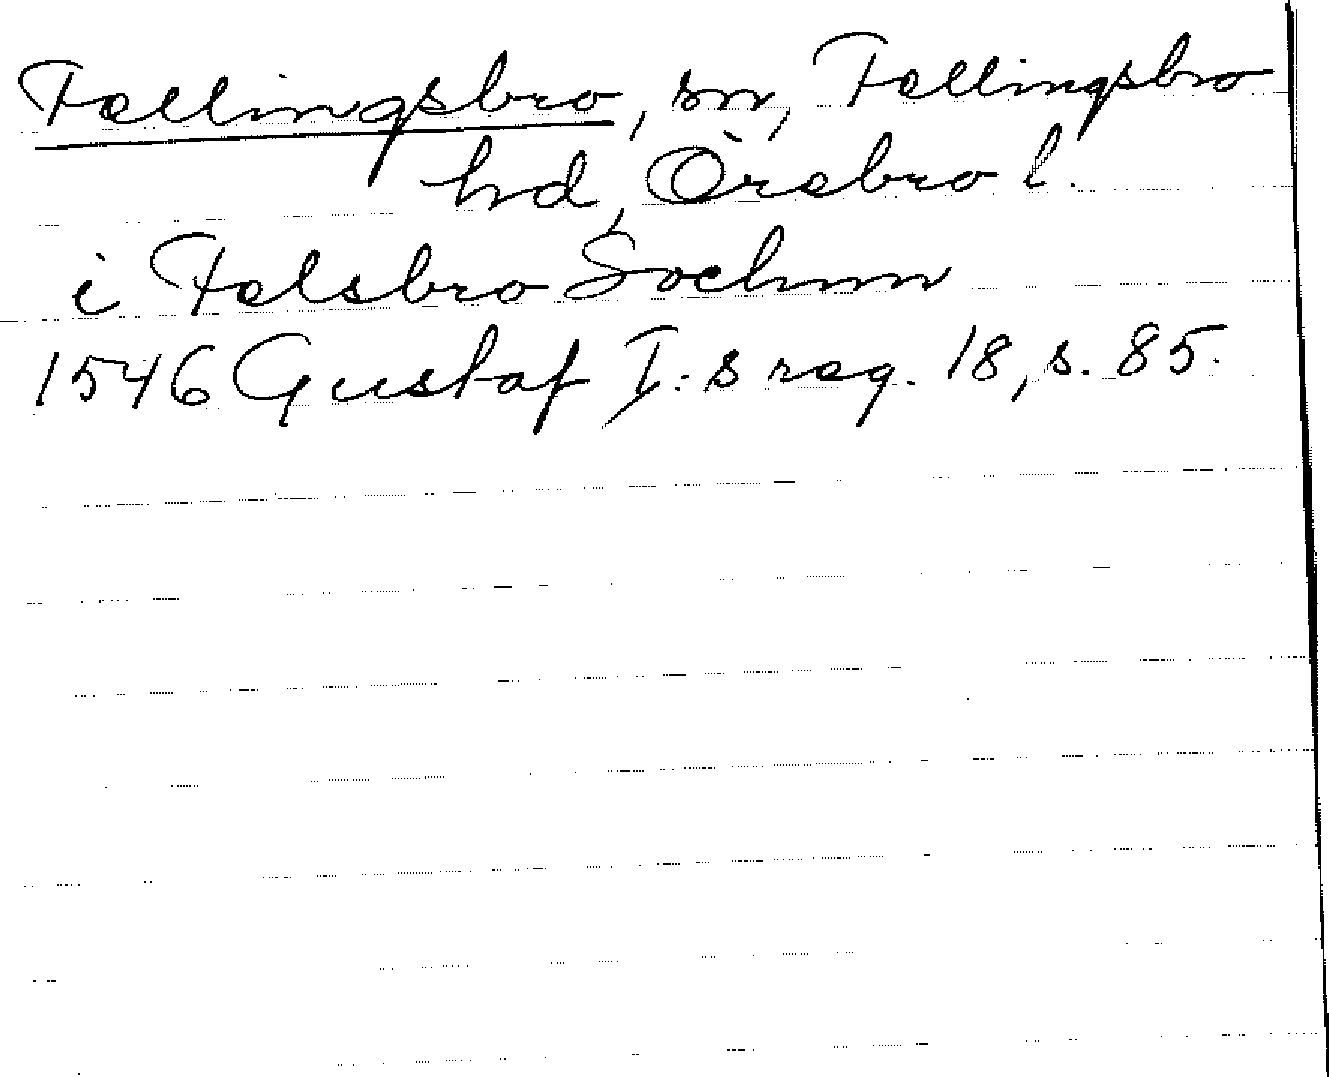 Fellingsbro, sn, Fellingsbro
hd, Örebro l.
i Felsbro Sochnn
1546 Gustaf I:s reg. 18, s. 85.